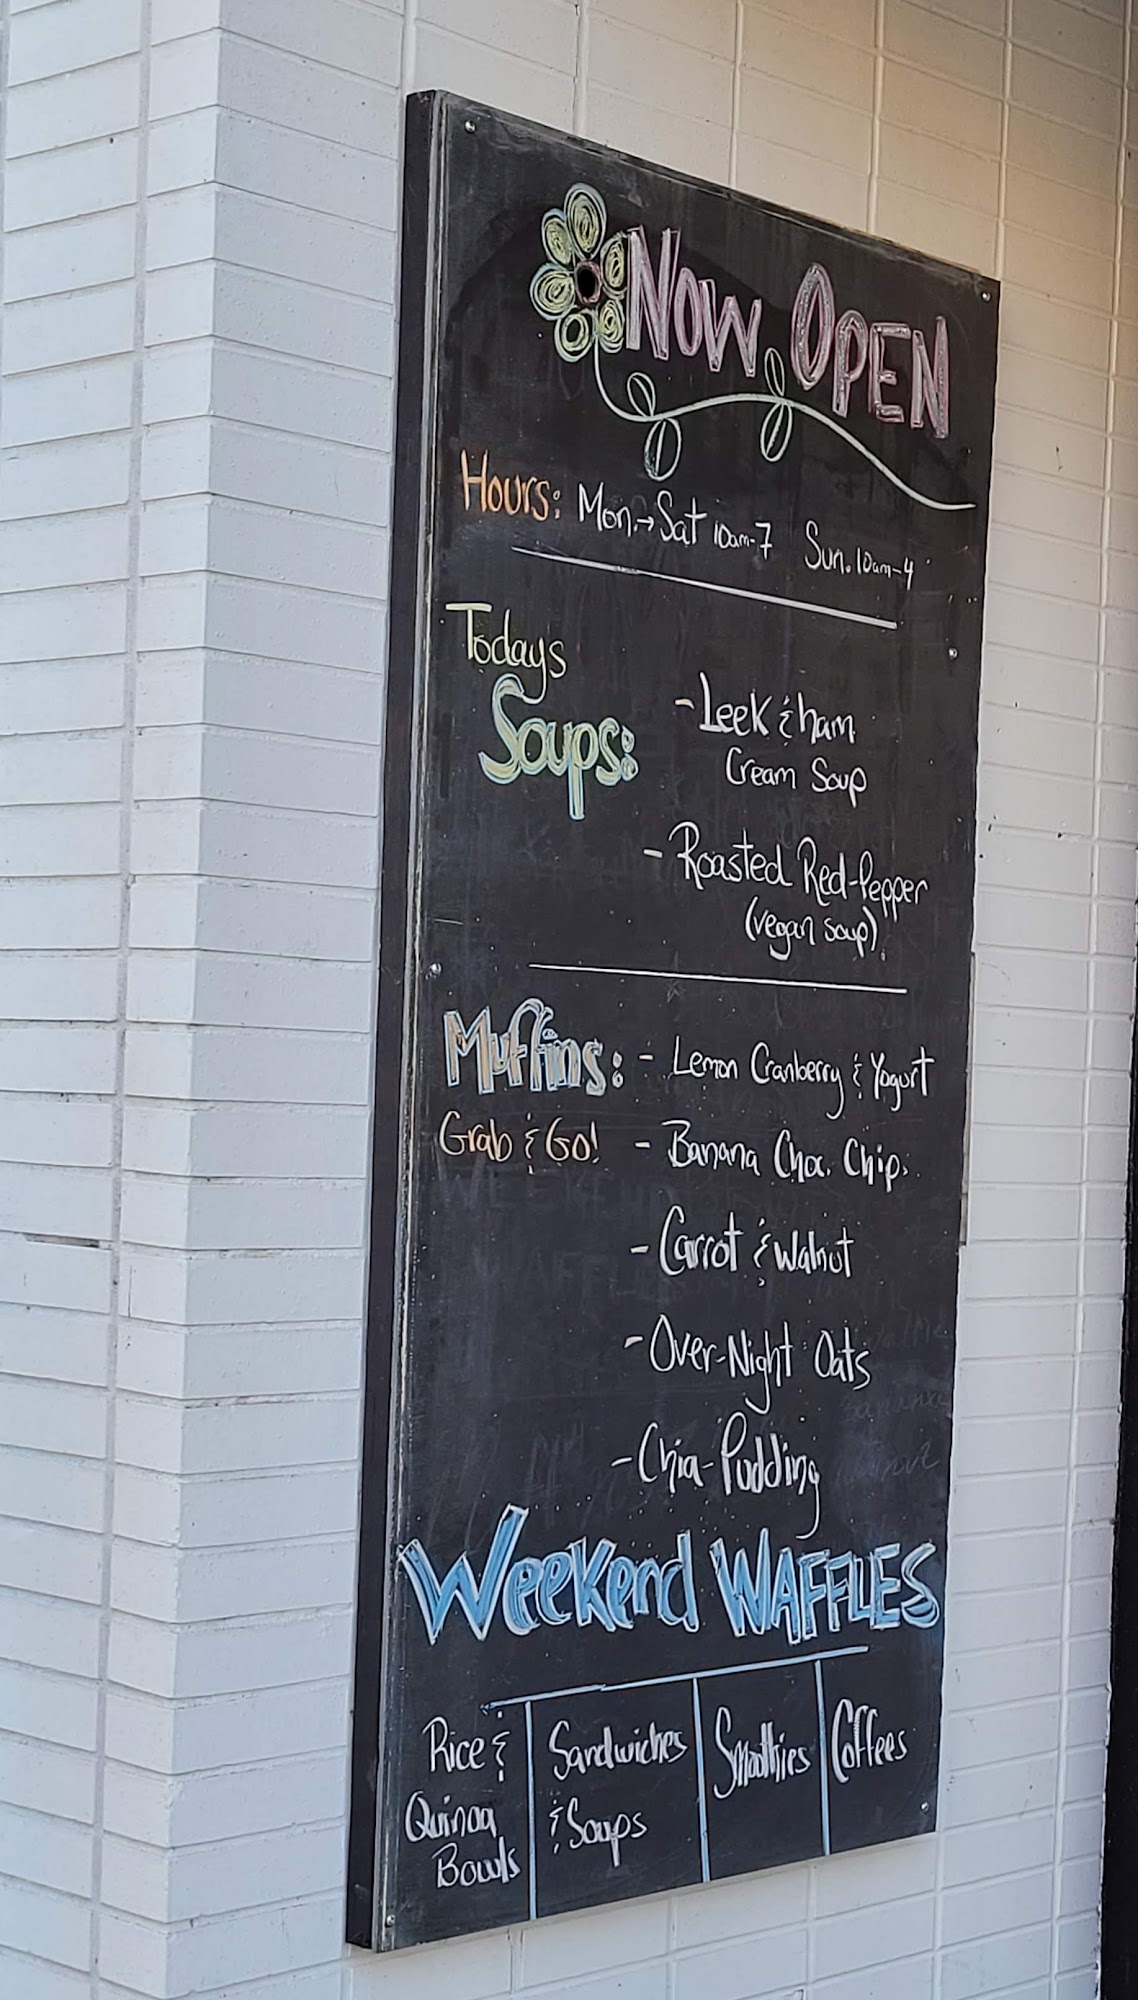 Now Open
Hours: Mon.→Sat 10am-7 Sun. 10am-4
Todays
Soups:
- Leek & ham
Cream Soup
- Roasted Red-Pepper
(vegan soup)
Muffins: - Lemon Cranberry & Yogurt
Grab & Go! - Banana Choc. Chip.
- Carrot & Walnut
- Over-Night Oats
- Chia-Pudding
Weekend WAFFLES
Rice &
Quinoa
Bowls
Sandwiches
& Soups
Smoothies
Coffees